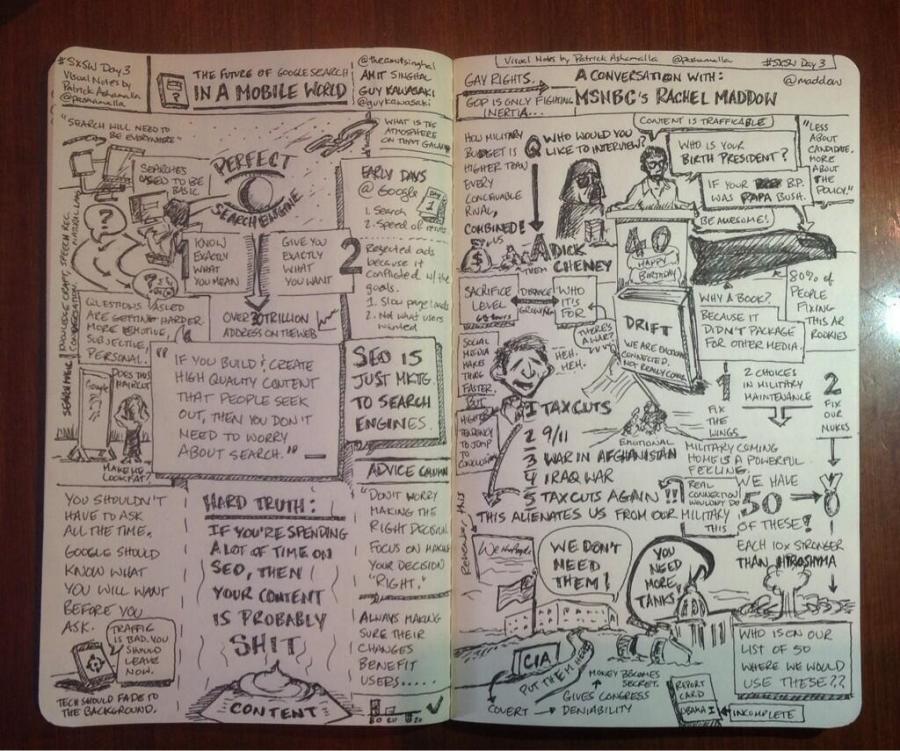 #SXSW Day 3
Visual Notes by
Patrick Ashamalla
@pashamalla
THE FUTURE OF GOOGLE SEARCH
IN A MOBILE WORLD
AMIT SINGHAL
GUY KAWASAKI
@guykawasaki
"SEARCH WILL NEED TO
BE EVERYWHERE"
WHAT IS THE
ATMOSPHERE
ON THAT GALAXY
SEARCHES
USED TO BE
BASIC
PERFECT
SEARCH ENGINE
KNOW
EXACTLY
WHAT
YOU MEAN
GIVE YOU
EXACTLY
WHAT
YOU WANT
OVER 30 TRILLION
ADDRESS ON THE WEB
EARLY DAYS
@ Google
DAY
1
1. Search
2. Speed of
2
Rejected ads
because it
conflicted w/the
goals.
1. Slow page loads
2. Not what users
wanted
?
KNOWLEDGE GRAPH, SPEECH REC.
QUESTIONS ASKED
ARE GETTING HARDER.
MORE EMOTIVE,
SUBJECTIVE,
PERSONAL.
Google
DOES THIS
HAIRCUT
MAKE ME
LOOK FAT?
"IF YOU BUILD & CREATE
HIGH QUALITY CONTENT
THAT PEOPLE SEEK
OUT, THEN YOU DON'T
NEED TO WORRY
ABOUT SEARCH."
SEO IS
JUST MKTG.
TO SEARCH
ENGINES.
ADVICE COLUMN
"DON'T WORRY
MAKING THE
RIGHT DECISION
FOCUS ON MAKING
YOUR DECISION
"RIGHT."
ALWAYS MAKING
SURE THEIR
CHANGES
BENEFIT
USERS.....
YOU SHOULDN'T
HAVE TO ASK
ALL THE TIME.
GOOGLE SHOULD
KNOW WHAT
YOU WILL WANT
BEFORE YOU
ASK.
TRAFFIC
IS BAD. YOU
SHOULD
LEAVE
NOW.
TECH SHOULD FADE TO
THE BACKGROUND.
HARD TRUTH:
IF YOU'RE SPENDING
A LOT OF TIME ON
SEO, THEN
YOUR CONTENT
IS PROBABLY
SHIT
CONTENT
Visual Notes by Patrick Ashamalla @pashamalla
#SXSW Day 3
GAY RIGHTS.
GOP IS ONLY FIGHTING
INERTIA...
A CONVERSATION WITH:
MSNBC'S RACHEL MADDOW
@maddow
HOW MILITARY
BUDGET IS
HIGHER THAN
EVERY
CONCEIVABLE
RIVAL,
COMBINED
US
THEM
Q WHO WOULD YOU
LIKE TO INTERVIEW?
A DICK
CHENEY
CONTENT IS TRAFFICABLE
WHO IS YOUR
BIRTH PRESIDENT?
IF YOUR B.P.
WAS PAPA BUSH.
BE AWESOME!
"LESS
ABOUT
CANDIDATE,
MORE
ABOUT
THE
POLICY."
40
HAPPY
BIRTHDAY
SACRIFICE
LEVEL
DISTANCE
GROWING
WHO
IT IS
FOR
THERE'S
A WAR?
DRIFT
WE ARE EMOTIONALLY
CONNECTED,
NOT REALLY CONN.
WHY A BOOK?
BECAUSE IT
DIDN'T PACKAGE
FOR OTHER MEDIA.
80% OF
PEOPLE
FIXING
THIS ARE
ROOKIES
SOCIAL
MEDIA
MAKE
THIS
FASTER
BUT
HIGHER
TENDENCY
TO JUMP
TO CONCLUSION
HEH.
HEH.
EMOTIONAL
1 TAX CUTS
2 9/11
3 WAR IN AFGHANISTAN
4 IRAQ WAR
5 TAX CUTS AGAIN !!
THIS ALIENATES US FROM OUR MILITARY
REAL
CONNECTION
WOULDN'T DO
THIS
1
2 CHOICES
IN MILITARY
MAINTENANCE
2
FIX
THE
WINGS
FIX
OUR
NUKES
MILITARY COMING
HOME IS A POWERFUL
FEELING.
WE HAVE
50
OF THESE!
EACH 10X STRONGER
THAN HIROSHIMA
We the People
WE DON'T
NEED
THEM!
YOU
NEED
MORE
TANKS!
CIA
PUT THEM HERE
MONEY BECOMES
SECRET.
COVERT
GIVES CONGRESS
DENIABILITY
REPORT
CARD
OBAMA I
INCOMPLETE
WHO IS ON OUR
LIST OF 50
WHERE WE WOULD
USE THESE??